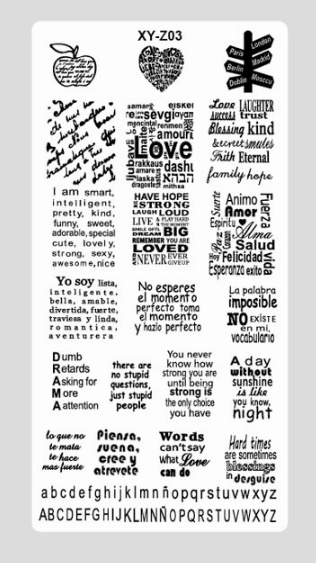 XY-Z03
London
Paris
Madrid
Berlin
Dublin
Moscou
sevgi
love
dashuri
dragoste
LOVE LAUGHTER
success trust
Blessing kind
secret smiles
Faith Eternal
family hope
I am smart,
intelligent,
pretty, kind,
funny, sweet,
adorable, special
cute, lovely,
strong, sexy,
awesome, nice
HAVE HOPE
BE STRONG
LAUGH LOUD
LIVE & PLAY HARD
SMILE OFTEN
DREAM BIG
REMEMBER YOU ARE
LOVED
AND NEVER EVER
GIVE UP
Suerte
Animo
Amor
Espiritu
Alma
Fuerza
Paz
Salud
Felicidad
Esperanzo exito
vida
Yo soy lista,
inteligente,
bella, amable,
divertida, fuerte,
traviesa y linda,
romantica,
aventurera
No esperes
el momento
perfecto toma
el momento
y hazlo perfecto
La palabra
imposible
NO EXISTE
en mi,
vocabulario
Dumb
Retards
Asking for
More
Aattention
there are
no stupid
questions,
just stupid
people
You never
know how
strong you are
until being
strong is
the only choice
you have
A day
without
sunshine
is like
you know,
night
lo que no
te mata
te hace
mas fuerte
Piensa,
suena,
cree y
atrevete
Words
can'tsay
what Love
can do
Hard times
are sometimes
blessings
in desguise
abcdefghijklmnñopqrstuvwxyz
ABCDEFGHIJKLMNÑOPQRSTUVWXYZ